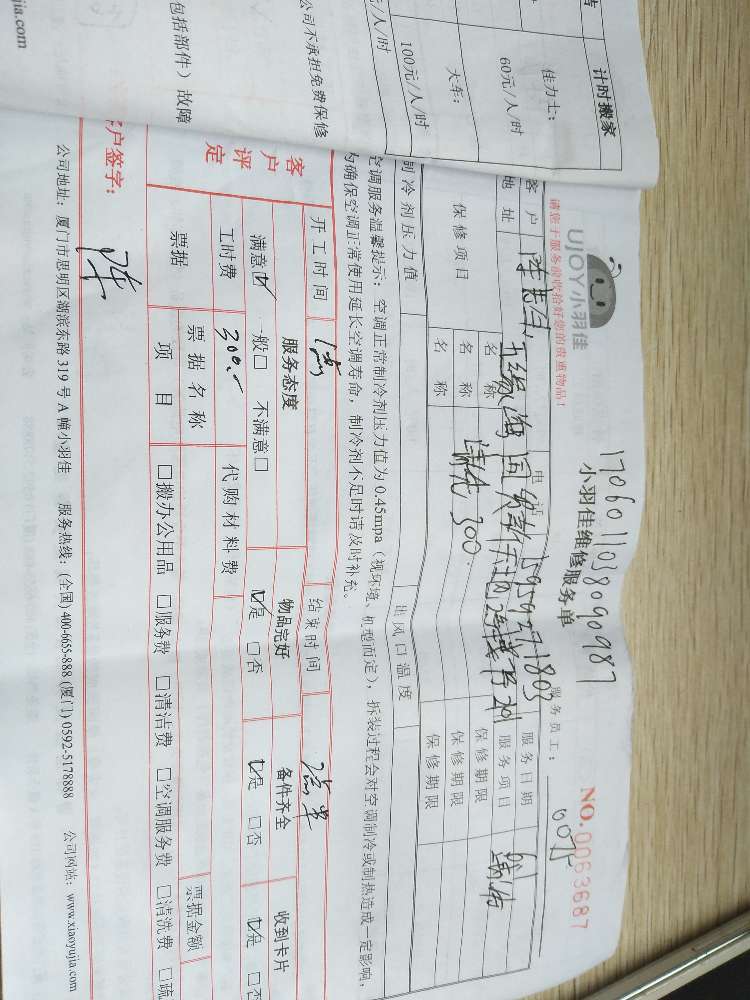 jia.com
计时搬家
佳力士：
60元/人/时
大车：
100元/人/时
元/人/时
公司不承担免费保修
包括部件）故障
UJOY小羽佳
请您于服务前收拾好您的贵重物品！
1706011038090987
小羽佳维修服务单
NO.0063687
服务员工：
客户
电话
15959271803
服务日期
地址
服务项目
清洗
保修项目
名称
保修期限
名称
清洗300.
保修期限
名称
保修期限
制冷剂压力值
出风口温度
空调服务温馨提示：空调正常制冷剂压力值为0.45mpa（视环境、机型而定），拆装过程会对空调制冷或制热造成一定影响，
为确保空调正常使用延长空调寿命，制冷剂不足时请及时补充。
开工时间
结束时间
客户评定
服务态度
物品完好
备件齐全
收到卡片
满意☑ 一般□ 不满意□
☑是 □否
☑是 □否
☑是 □否
工时费
300.
代购材料费
票据
票据名称
票据金额
项目
□搬办公用品 □服务费 □清洁费 □空调服务费 □清洗费 □疏
客户签字：
公司地址：厦门市思明区湖滨东路319号A幢小羽佳 服务热线：(全国) 400-6655-888 (厦门) 0592-5178888 公司网站：www.xiaoyujia.com